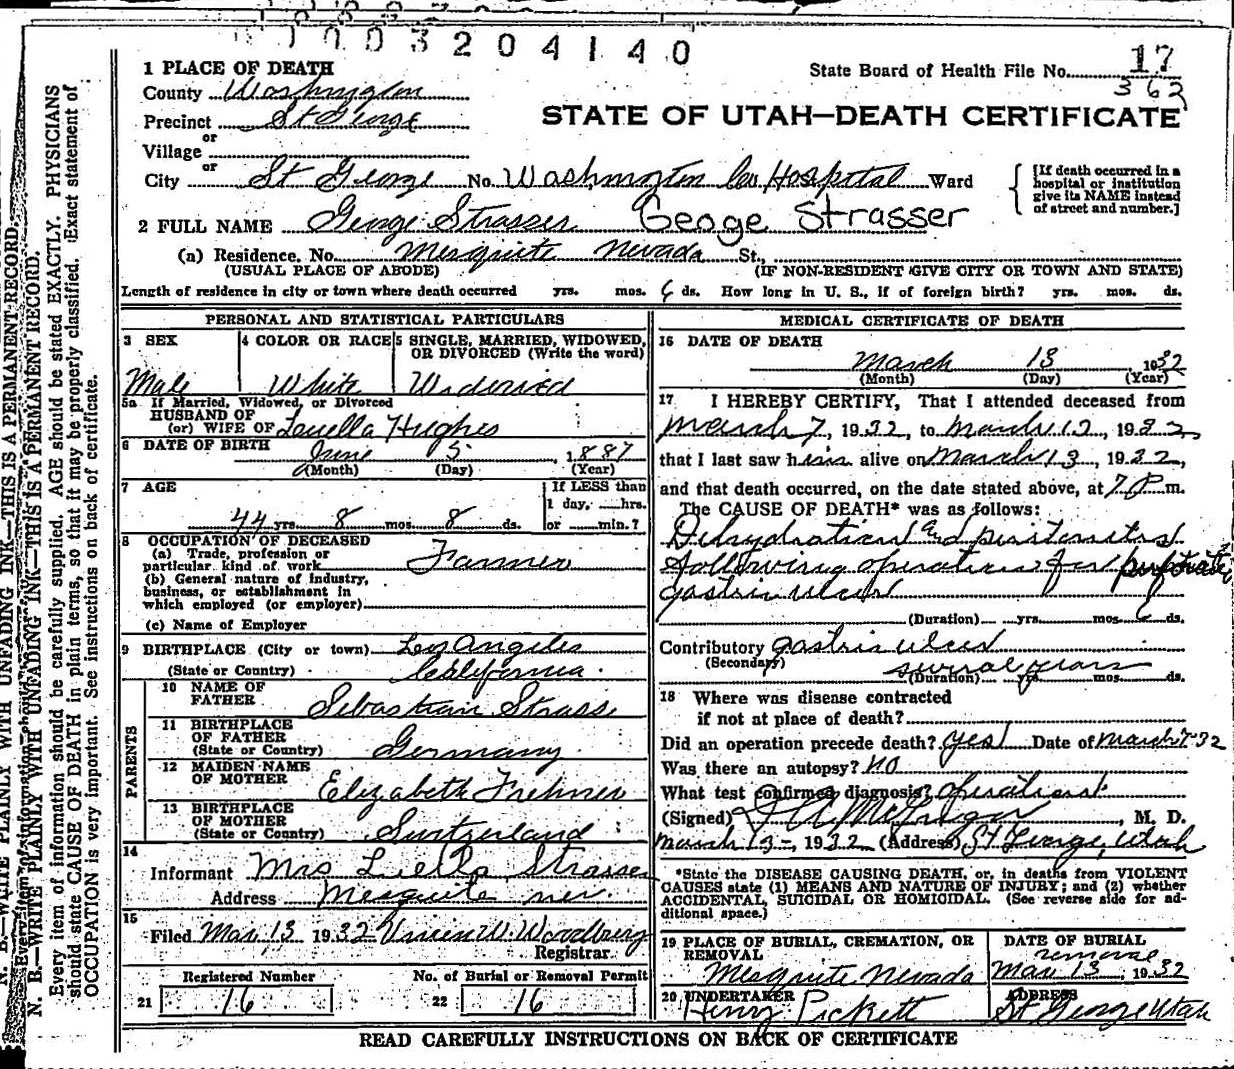 1003204140
1 PLACE OF DEATH
State Board of Health File No. 17
362
County Washington
STATE OF UTAH—DEATH CERTIFICATE
Precinct St George
or
Village
or
City St George No. Washington Co Hospital Ward
[If death occurred in a hospital or institution give its NAME instead of street and number.]
2 FULL NAME George Strasser Geoge Strasser
(a) Residence. No. Mesquite Nevada St.,
(USUAL PLACE OF ABODE) (IF NON-RESIDENT GIVE CITY OR TOWN AND STATE)
Length of residence in city or town where death occurred yrs. mos. 6 ds. How long in U. S., if of foreign birth? yrs. mos. ds.
PERSONAL AND STATISTICAL PARTICULARS
3 SEX 4 COLOR OR RACE 5 SINGLE, MARRIED, WIDOWED, OR DIVORCED (Write the word)
Male White Widowed
5a If Married, Widowed, or Divorced
HUSBAND OF
(or) WIFE OF Louella Hughes
6 DATE OF BIRTH June 5 1887
(Month) (Day) (Year)
7 AGE If LESS than
1 day, hrs.
44 yrs. 8 mos. 8 ds. or min.?
8 OCCUPATION OF DECEASED
(a) Trade, profession or
particular kind of work Farmer
(b) General nature of industry,
business, or establishment in
which employed (or employer)
(c) Name of Employer
9 BIRTHPLACE (City or town) Los Angeles
(State or Country) California
PARENTS
10 NAME OF
FATHER Sebastian Strasse
11 BIRTHPLACE
OF FATHER
(State or Country) Germany
12 MAIDEN NAME
OF MOTHER Elizabeth Frehner
13 BIRTHPLACE
OF MOTHER
(State or Country) Switzerland
14
Informant Mrs Luella Strasser
Address Mesquite Nev.
15
Filed Mar 13 1932 Vivien W. Woodbury
Registrar
Registered Number No. of Burial or Removal Permit
21 16 22 16
MEDICAL CERTIFICATE OF DEATH
16 DATE OF DEATH
March 13 1932
(Month) (Day) (Year)
17 I HEREBY CERTIFY, That I attended deceased from
March 7, 1932, to March 13, 1932,
that I last saw him alive on March 13, 1932,
and that death occurred, on the date stated above, at 7 P. m.
The CAUSE OF DEATH* was as follows:
Dehydration and peritonitis
following operation for
gastric ulcer
(Duration) yrs. mos. 6 ds.
Contributory gastric ulcer
(Secondary) several years
(Duration) yrs. mos. ds.
18 Where was disease contracted
if not at place of death?
Did an operation precede death? yes Date of March 7 32
Was there an autopsy? no
What test confirmed diagnosis? operation
(Signed) McGregor, M. D.
March 13, 1932 (Address) St George, Utah
*State the DISEASE CAUSING DEATH, or, in deaths from VIOLENT
CAUSES state (1) MEANS AND NATURE OF INJURY; and (2) whether
ACCIDENTAL, SUICIDAL OR HOMICIDAL. (See reverse side for ad-
ditional space.)
19 PLACE OF BURIAL, CREMATION, OR REMOVAL DATE OF BURIAL
removal
Mesquite Nevada Mar 13, 1932
20 UNDERTAKER ADDRESS
Henry Pickett St George Utah
READ CAREFULLY INSTRUCTIONS ON BACK OF CERTIFICATE
N. B.—WRITE PLAINLY WITH UNFADING INK—THIS IS A PERMANENT RECORD.
N. B.—WRITE PLAINLY WITH UNFADING INK—THIS IS A PERMANENT RECORD.
Every item of information should be carefully supplied. AGE should be stated EXACTLY. PHYSICIANS
should state CAUSE OF DEATH in plain terms, so that it may be properly classified. Exact statement of
OCCUPATION is very important. See instructions on back of certificate.